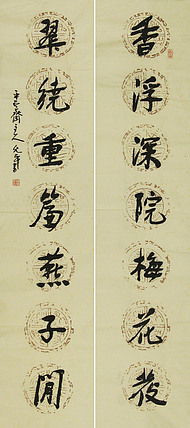 香浮深院梅花發
翠繞重簾燕子閒